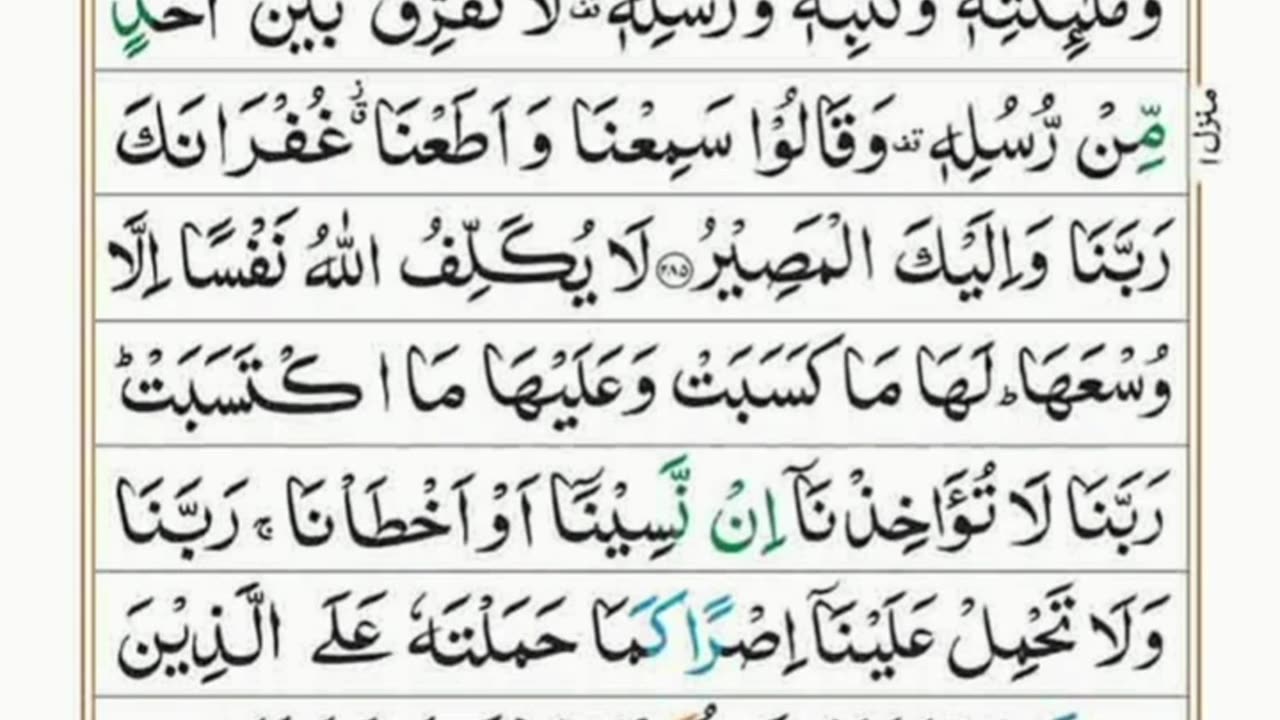 وَمَلٰٓئِكَتِهٖ وَكُتُبِهٖ وَرُسُلِهٖ ۟ لَا نُفَرِّقُ بَيْنَ اَحَدٍ
مِّنْ رُّسُلِهٖ ۟ وَقَالُوْا سَمِعْنَا وَاَطَعْنَا ۗ غُفْرَانَكَ
رَبَّنَا وَاِلَيْكَ الْمَصِيْرُ ﴿۲۸۵﴾ لَا يُكَلِّفُ اللّٰهُ نَفْسًا اِلَّا
وُسْعَهَا ؕ لَهَا مَا كَسَبَتْ وَعَلَيْهَا مَا اكْتَسَبَتْ ؕ
رَبَّنَا لَا تُؤَاخِذْنَآ اِنْ نَّسِيْنَآ اَوْ اَخْطَاْنَا ۚ رَبَّنَا
وَلَا تَحْمِلْ عَلَيْنَآ اِصْرًا كَمَا حَمَلْتَهٗ عَلَى الَّذِيْنَ
منزل ۱